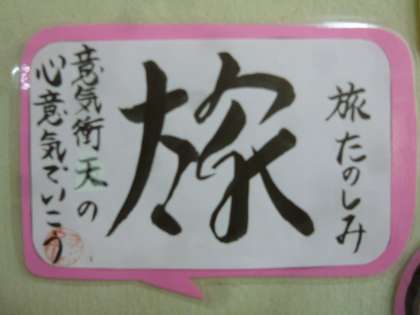 旅たのしみ
旅
意気衝天の
心意気でいこう